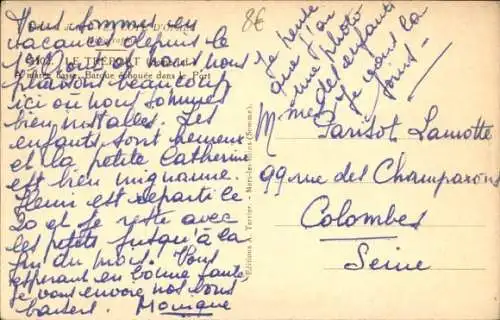 Nous sommes en
vacances depuis le
LE TRÉPORT
marée basse. Barque échouée dans le Port
plaisons beaucoup
ici où nous sommes
bien installés. Les
enfants sont heureux
et la petite Catherine
est bien mignonne.
Henri est reparti le
20 et je reste avec
les petits jusqu'à la
fin du mois. Vous
espérant en bonne santé
je vous envoie nos bons
baisers. Monique
Editions A. Terrier - Mers-les-Bains (Somme).
8€
Je pense
que j'ai
une photo
des enfants
Je vous la
joins
M Parisot Lamotte
99 rue des Champarons
Colombes
Seine